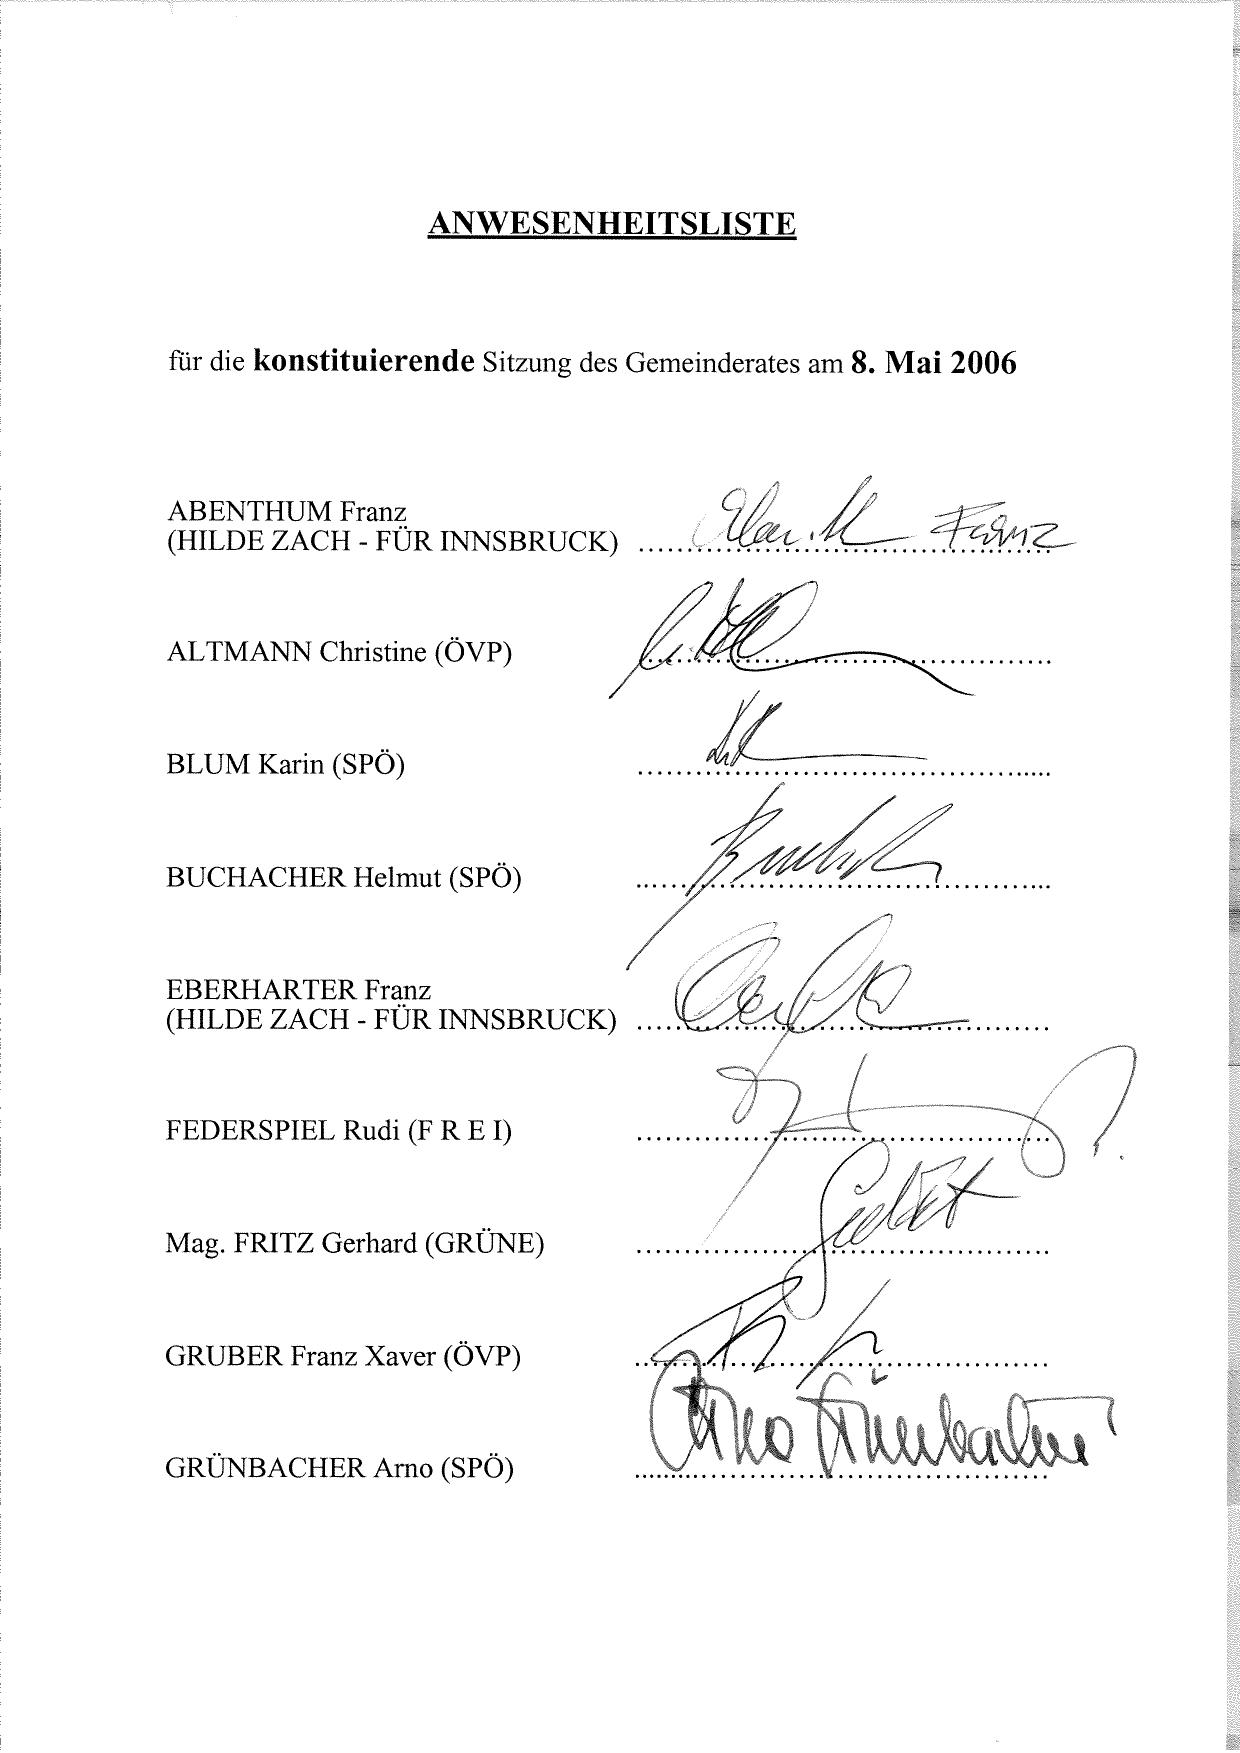 ANWESENHEITSLISTE
für die konstituierende Sitzung des Gemeinderates am 8. Mai 2006
ABENTHUM Franz
(HILDE ZACH - FÜR INNSBRUCK) Franz
ALTMANN Christine (ÖVP)
BLUM Karin (SPÖ)
BUCHACHER Helmut (SPÖ)
EBERHARTER Franz
(HILDE ZACH - FÜR INNSBRUCK)
FEDERSPIEL Rudi (F R E I)
Mag. FRITZ Gerhard (GRÜNE)
GRUBER Franz Xaver (ÖVP)
GRÜNBACHER Arno (SPÖ) Arno Grünbacher